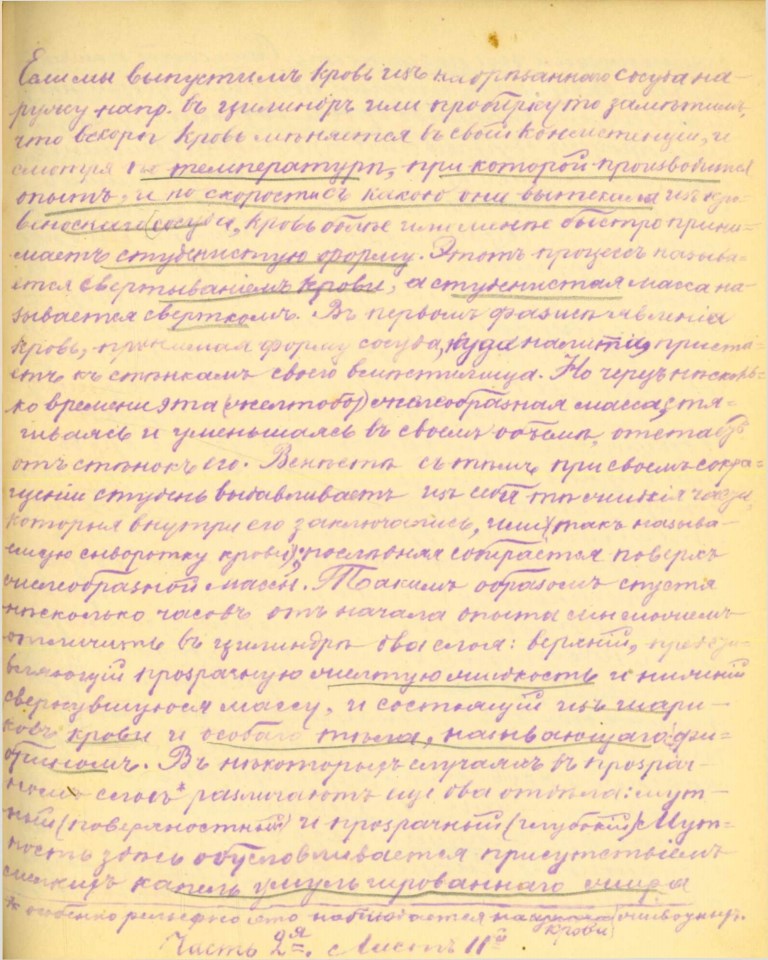 Если мы выпустимъ кровь изъ надрѣзаннаго сосуда на-
ружу напр. въ цилиндръ или пробирку то замѣтимъ,
что вскорѣ кровь мѣняется въ своей консистенціи, и
смотря по температурѣ, при которой производится
опытъ, и по скорости съ какою она вытекала изъ кро-
веноснаго сосуда, кровь болѣе или менѣе быстро прини-
маетъ студенистую форму. Этотъ процессъ называ-
ется свертываніемъ крови, а студенистая масса на-
зывается сверткомъ. Въ первомъ фазисѣ явленія
кровь, принимая форму сосуда, куда налита, приста-
етъ къ стѣнкамъ своего вмѣстилища. Но черезъ нѣсколь-
ко времени эта (желтобо) желеобразная масса, стя-
гиваясь и уменьшаясь въ своемъ объемѣ, отстаетъ
отъ стѣнокъ его. Вмѣстѣ съ тѣмъ, при своемъ сокра-
щеніи студень выдавливаетъ изъ себя тѣ жидкія части,
которыя внутри его заключались, или (такъ называ-
емую сыворотку крови); послѣдняя собирается поверхъ
желеобразной массы. Такимъ образомъ спустя
нѣсколько часовъ отъ начала опыта мы можемъ
отличить въ цилиндрѣ два слоя: верхній, предста-
вляющій прозрачную желтую жидкость и нижній
свернувшуюся массу, и состоящій изъ шари-
ковъ крови и особаго тѣла, называющагося фи-
бриномъ. Въ нѣкоторыхъ случаяхъ въ прозрач-
номъ слоѣ* различаютъ еще два отдѣла: мут-
ный (поверхностный) и прозрачный (глубокій). Мут-
ность здѣсь обусловливается присутствіемъ
мелкихъ капель эмульгированнаго жира
* особенно рельефно это наблюдается на крови животныхъ.
Часть 2я. Листъ 11й